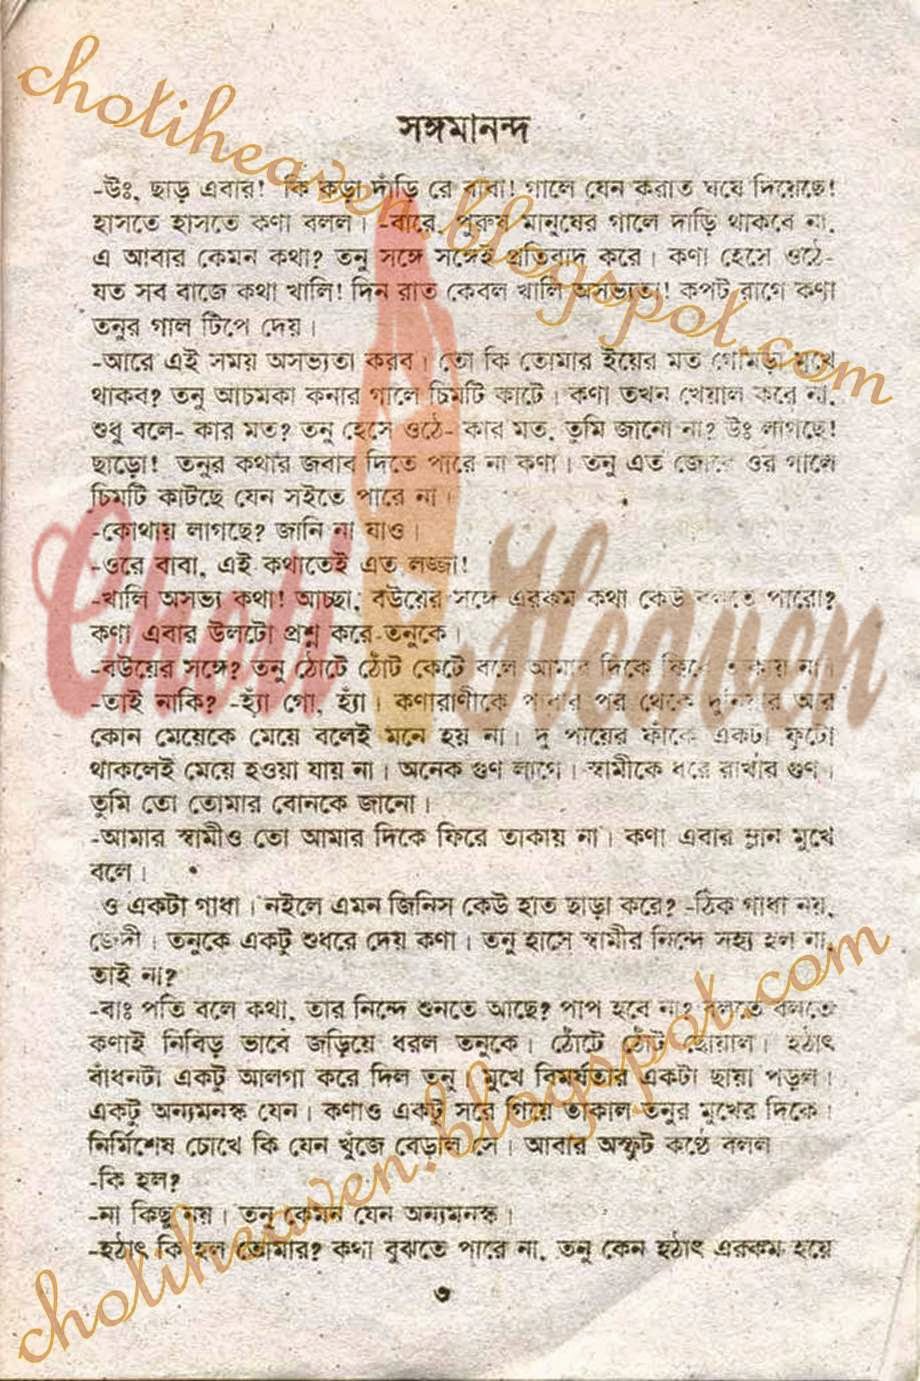 chotiheaven.blogspot.com
সঙ্গমানন্দ
-উঃ, ছাড় এবার! কি কড়া দাঁড়ি রে বাবা! গালে যেন করাত ঘষে দিয়েছে!
হাসতে হাসতে কণা বলল। -বারে, পুরুষ মানুষের গালে দাড়ি থাকবে না,
এ আবার কেমন কথা? তনু সঙ্গে সঙ্গেই প্রতিবাদ করে। কণা হেসে ওঠে-
যত সব বাজে কথা খালি! দিন রাত কেবল খালি অসভ্যতা! কপট রাগে কণা
তনুর গাল টিপে দেয়।
-আরে এই সময় অসভ্যতা করব। তো কি তোমার ইয়ের মত গোমড়া মুখে
থাকব? তনু আচমকা কনার গালে চিমটি কাটে। কণা তখন খেয়াল করে না,
শুধু বলে- কার মত? তনু হেসে ওঠে- কার মত, তুমি জানো না? উঃ লাগছে!
ছাড়ো! তনুর কথার জবাব দিতে পারে না কণা। তনু এত জোরে ওর গালে
চিমটি কাটছে যেন সইতে পারে না।
-কোথায় লাগছে? জানি না যাও।
-ওরে বাবা, এই কথাতেই এত লজ্জা!
-খালি অসভ্য কথা! আচ্ছা, বউয়ের সঙ্গে এরকম কথা কেউ বলতে পারো?
কণা এবার উলটো প্রশ্ন করে-তনুকে।
-বউয়ের সঙ্গে? তনু ঠোটে ঠোঁট কেটে বলে আমার দিকে ফিরে তাকায় না।
-তাই নাকি? -হ্যাঁ গো, হ্যাঁ। কণারাণীকে পাবার পর থেকে দুনিয়ার আর
কোন মেয়েকে মেয়ে বলেই মনে হয় না। দু পায়ের ফাঁকে একটা ফুটো
থাকলেই মেয়ে হওয়া যায় না। অনেক গুণ লাগে। স্বামীকে ধরে রাখার গুণ।
তুমি তো তোমার বোনকে জানো।
-আমার স্বামীও তো আমার দিকে ফিরে তাকায় না। কণা এবার ম্লান মুখে
বলে।
ও একটা গাধা। নইলে এমন জিনিস কেউ হাত ছাড়া করে? -ঠিক গাধা নয়,
জেদী। তনুকে একটু শুধরে দেয় কণা। তনু হাসে স্বামীর নিন্দে সহ্য হল না,
তাই না?
-বাঃ পতি বলে কথা, তার নিন্দে শুনতে আছে? পাপ হবে না? বলতে বলতে
কণাই নিবিড় ভাবে জড়িয়ে ধরল তনুকে। ঠোঁটে ঠোঁট ছোয়াল। হঠাৎ
বাঁধনটা একটু আলগা করে দিল তনু। মুখে বিমর্ষতার একটা ছায়া পড়ল।
একটু অন্যমনস্ক যেন। কণাও একটু সরে গিয়ে তাকাল তনুর মুখের দিকে।
নির্মিশেষ চোখে কি যেন খুঁজে বেড়াল সে। আবার অস্ফুট কণ্ঠে বলল
-কি হল?
-না কিছু নয়। তনু কেমন যেন অন্যমনস্ক।
-হঠাৎ কি হল তোমার? কথা বুঝতে পারে না, তনু কেন হঠাৎ এরকম হয়ে
৩
Choti Heaven
chotiheaven.blogspot.com